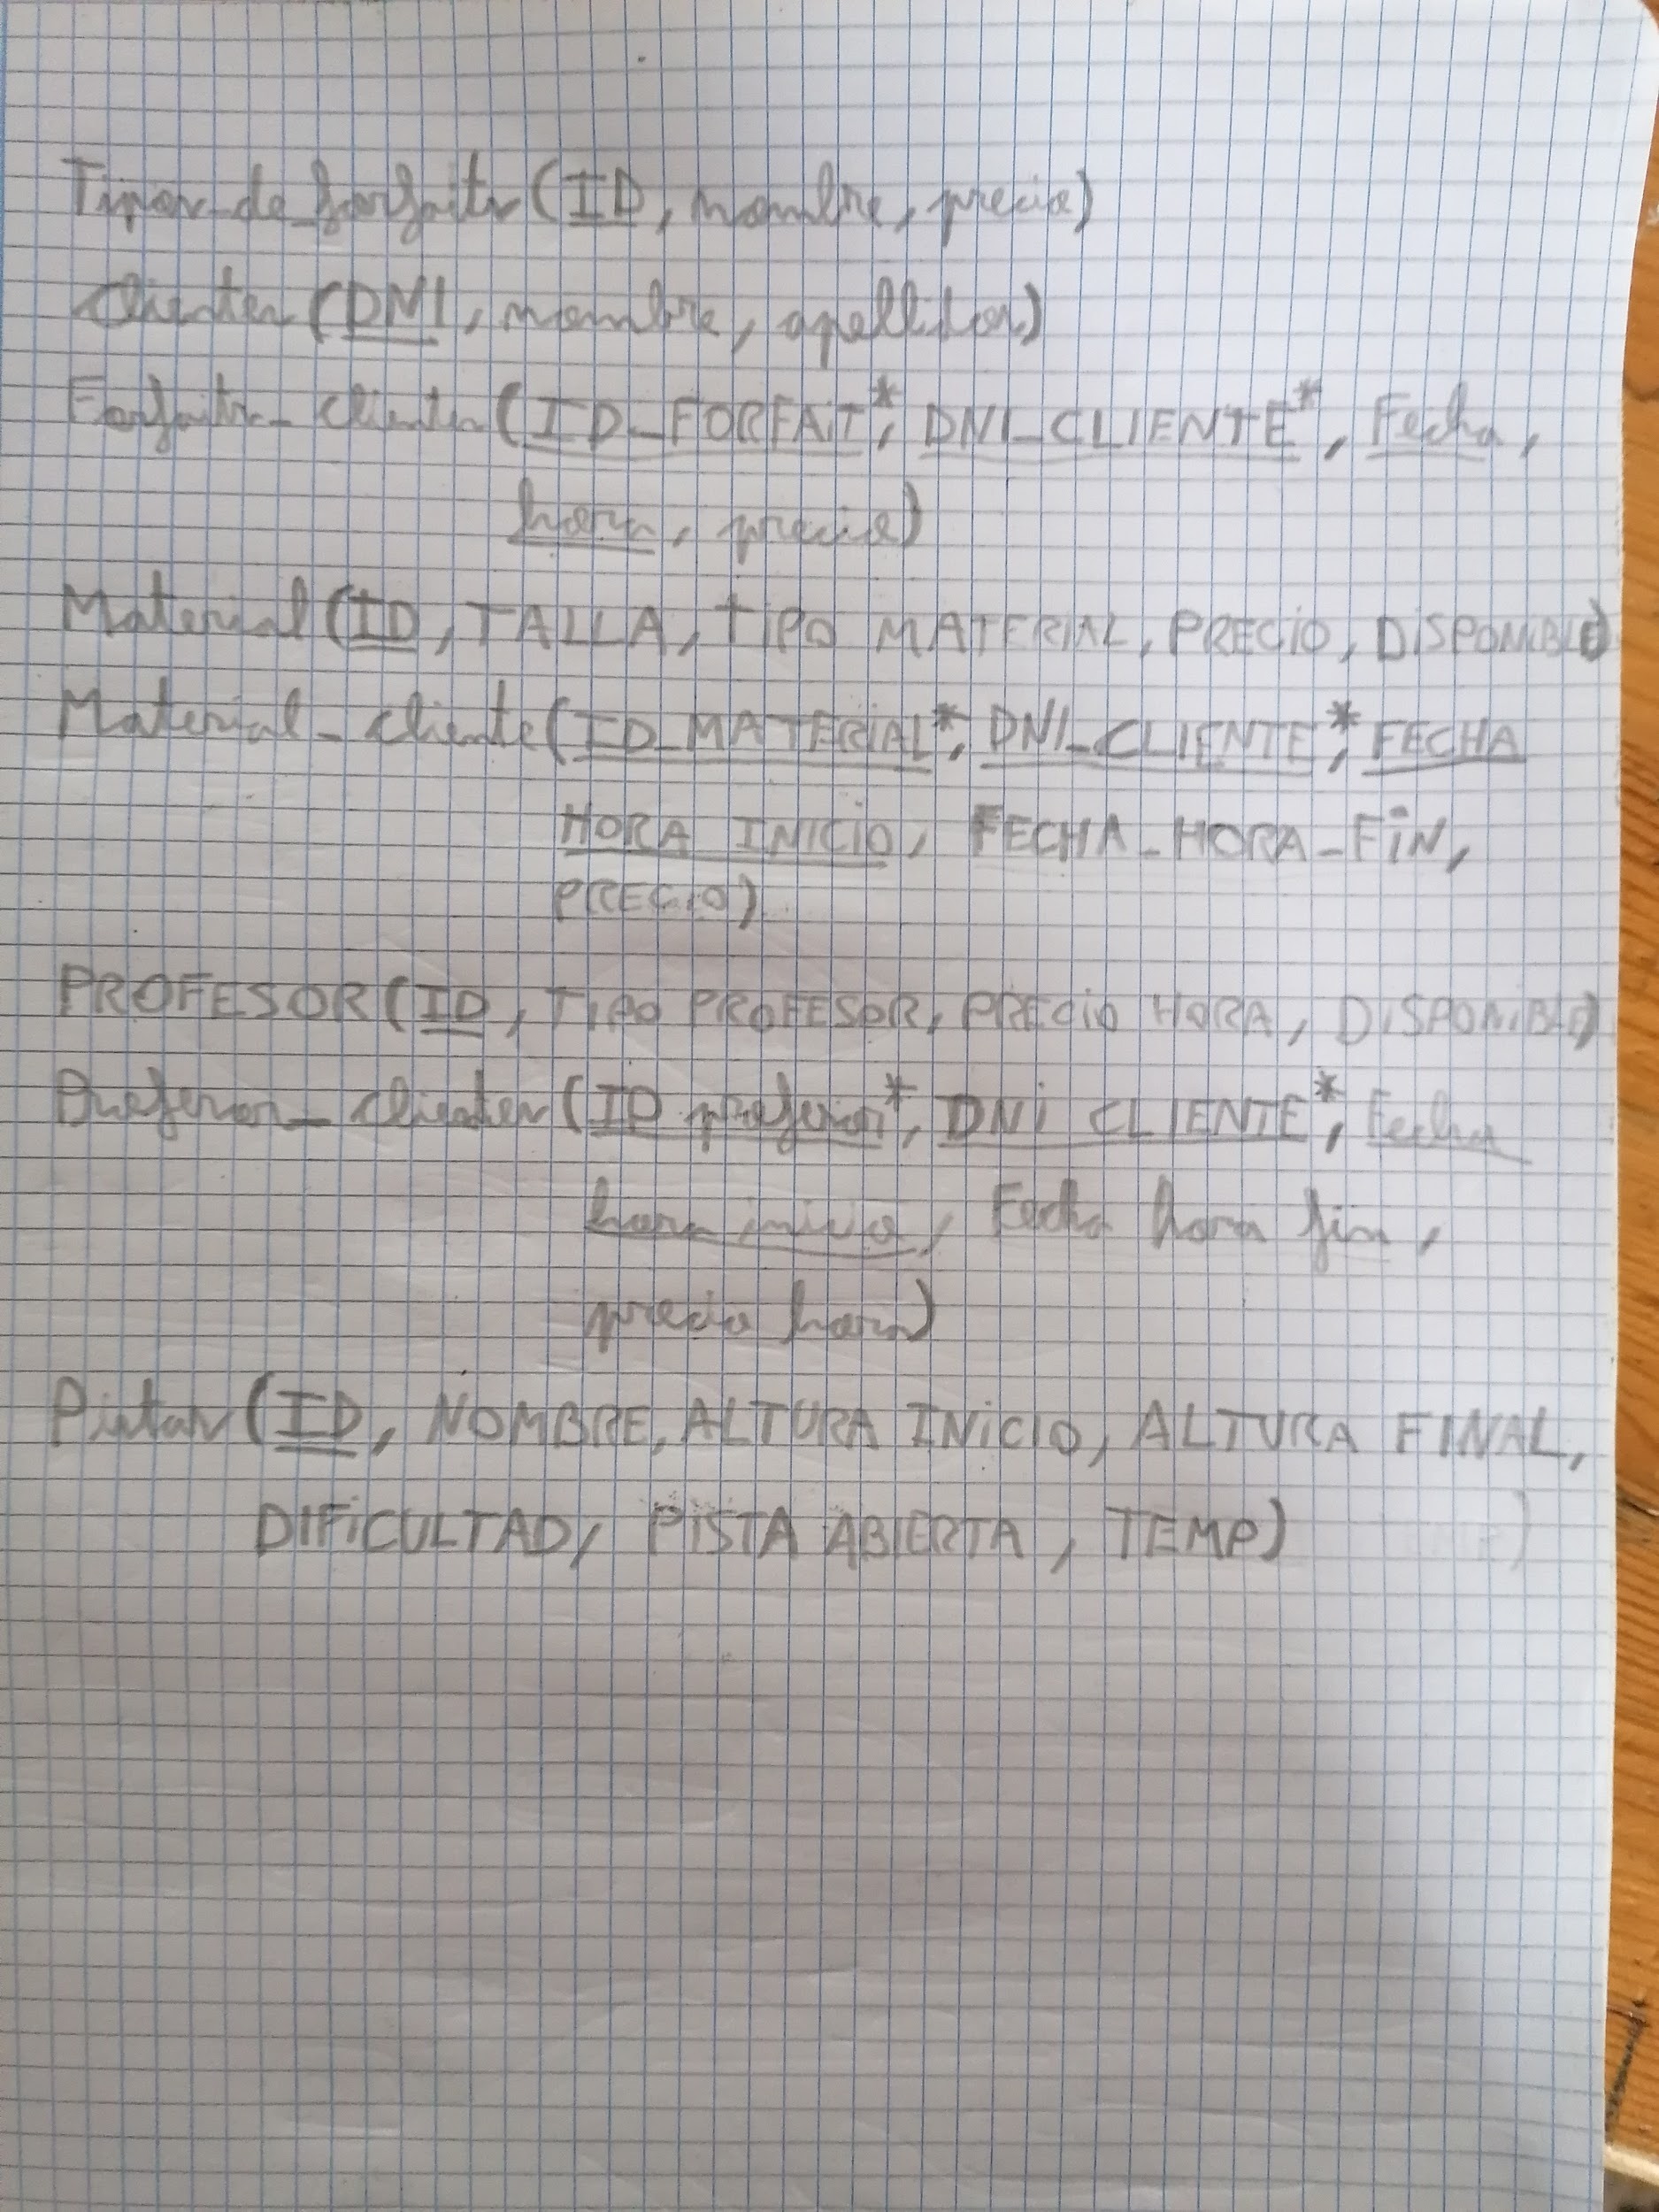 Tipos_de_forfaits (ID, nombre, precio)
Clientes (DNI, nombre, apellidos)
Forfaits_clientes (ID_FORFAIT*, DNI_CLIENTE*, Fecha,
hora, precio)
Material (ID, TALLA, TIPO MATERIAL, PRECIO, DISPONIBLE)
Material_cliente (ID_MATERIAL*, DNI_CLIENTE*, FECHA
HORA INICIO, FECHA_HORA_FIN,
PRECIO)
PROFESOR (ID, TIPO PROFESOR, PRECIO HORA, DISPONIBLE)
Profesor_clientes (ID profesor*, DNI CLIENTE*, Fecha
hora inicio, Fecha hora fin,
precio hora)
Pistas (ID, NOMBRE, ALTURA INICIO, ALTURA FINAL,
DIFICULTAD, PISTA ABIERTA, TEMP)